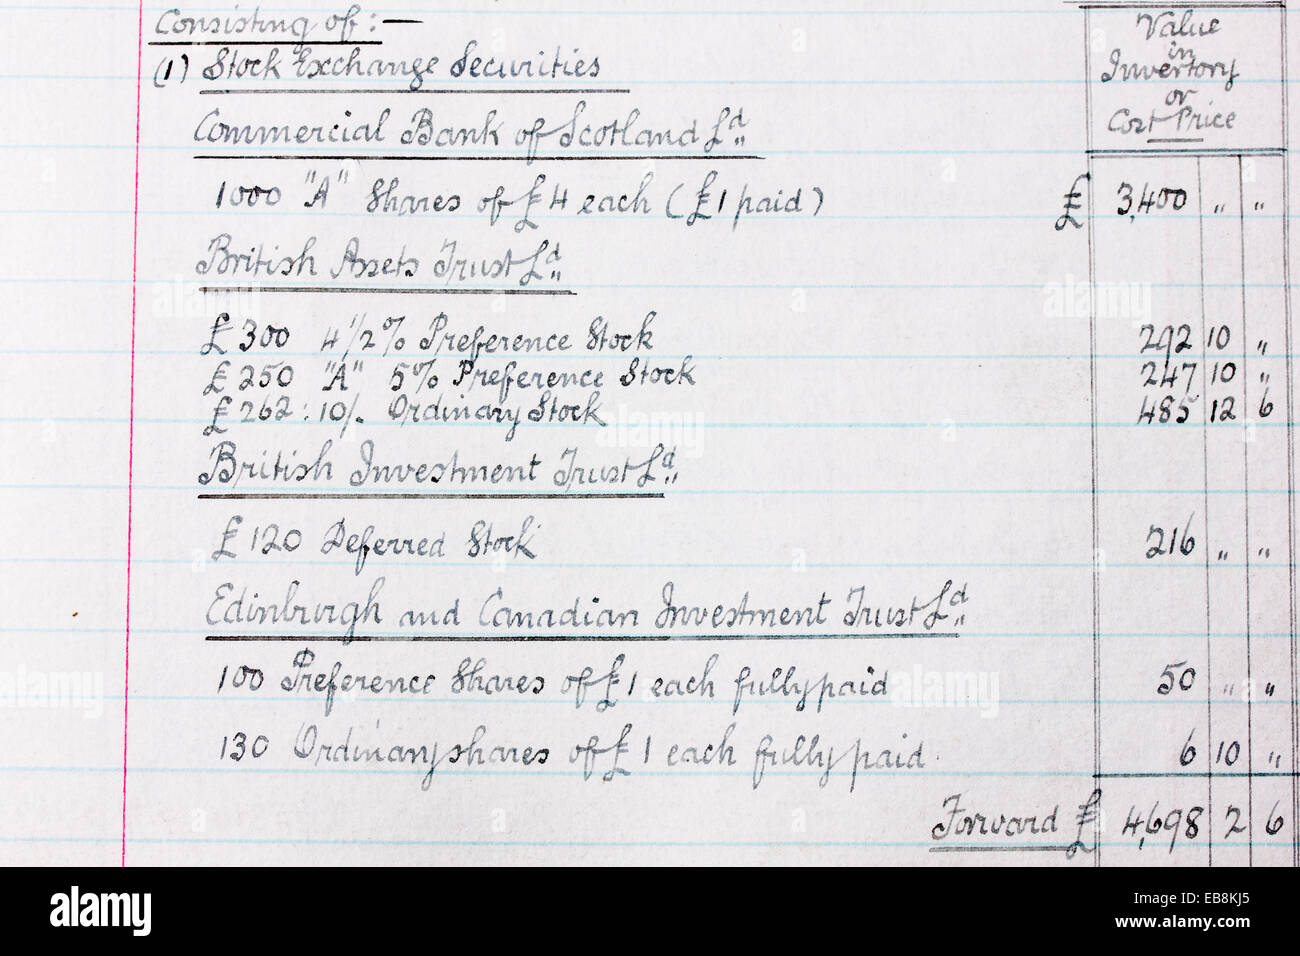 Consisting of:—
Value
in
Inventory
or
Cost Price
(1) Stock Exchange Securities
Commercial Bank of Scotland Ld
1000 "A" Shares of £4 each (£1 paid) £ 3,400 " "
British Assets Trust Ld
£300 4 1/2% Preference Stock 292 10 "
£250 "A" 5% Preference Stock 247 10 "
£262:10/- Ordinary Stock 485 12 6
British Investment Trust Ld
£120 Deferred Stock 216 " "
Edinburgh and Canadian Investment Trust Ld
100 Preference Shares of £1 each fully paid 50 " "
130 Ordinary shares of £1 each fully paid 6 10 "
Forward £ 4,698 2 6
alamy
alamy
alamy
alamy
alamy
alamy
alamy stock photo
EB8KJ5
www.alamy.com